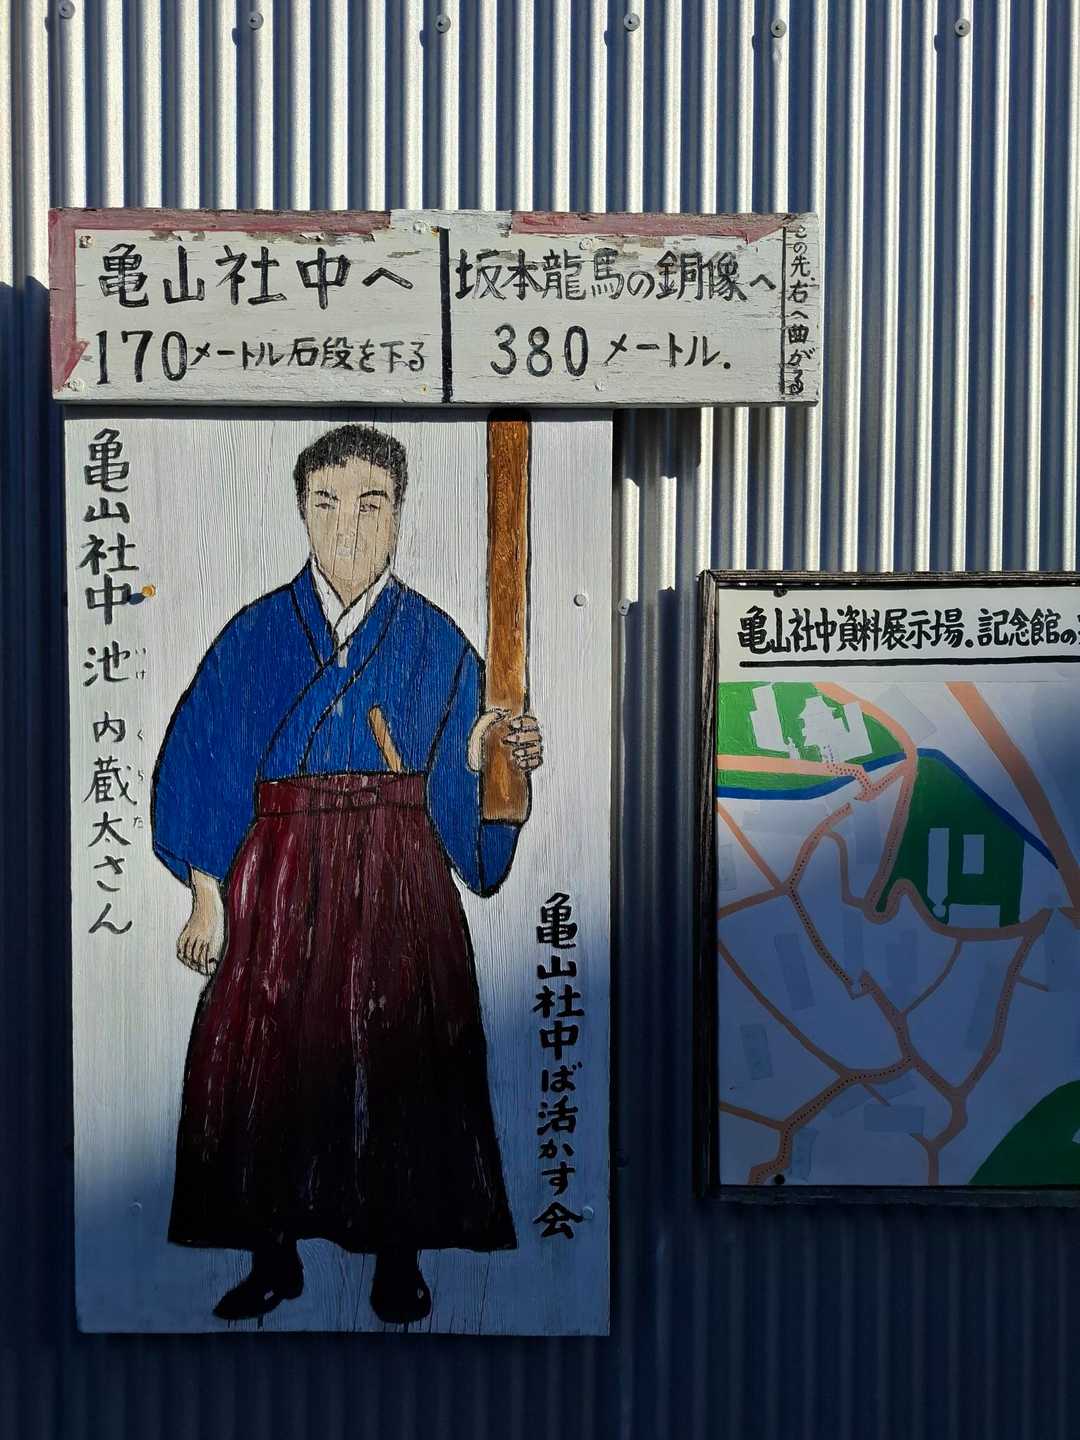 亀山社中へ
170メートル石段を下る
坂本龍馬の銅像へ
380メートル.
この先、右へ曲がる
亀山社中 池 内蔵太さん
いけ くらた
亀山社中ば活かす会
亀山社中資料展示場.記念館の